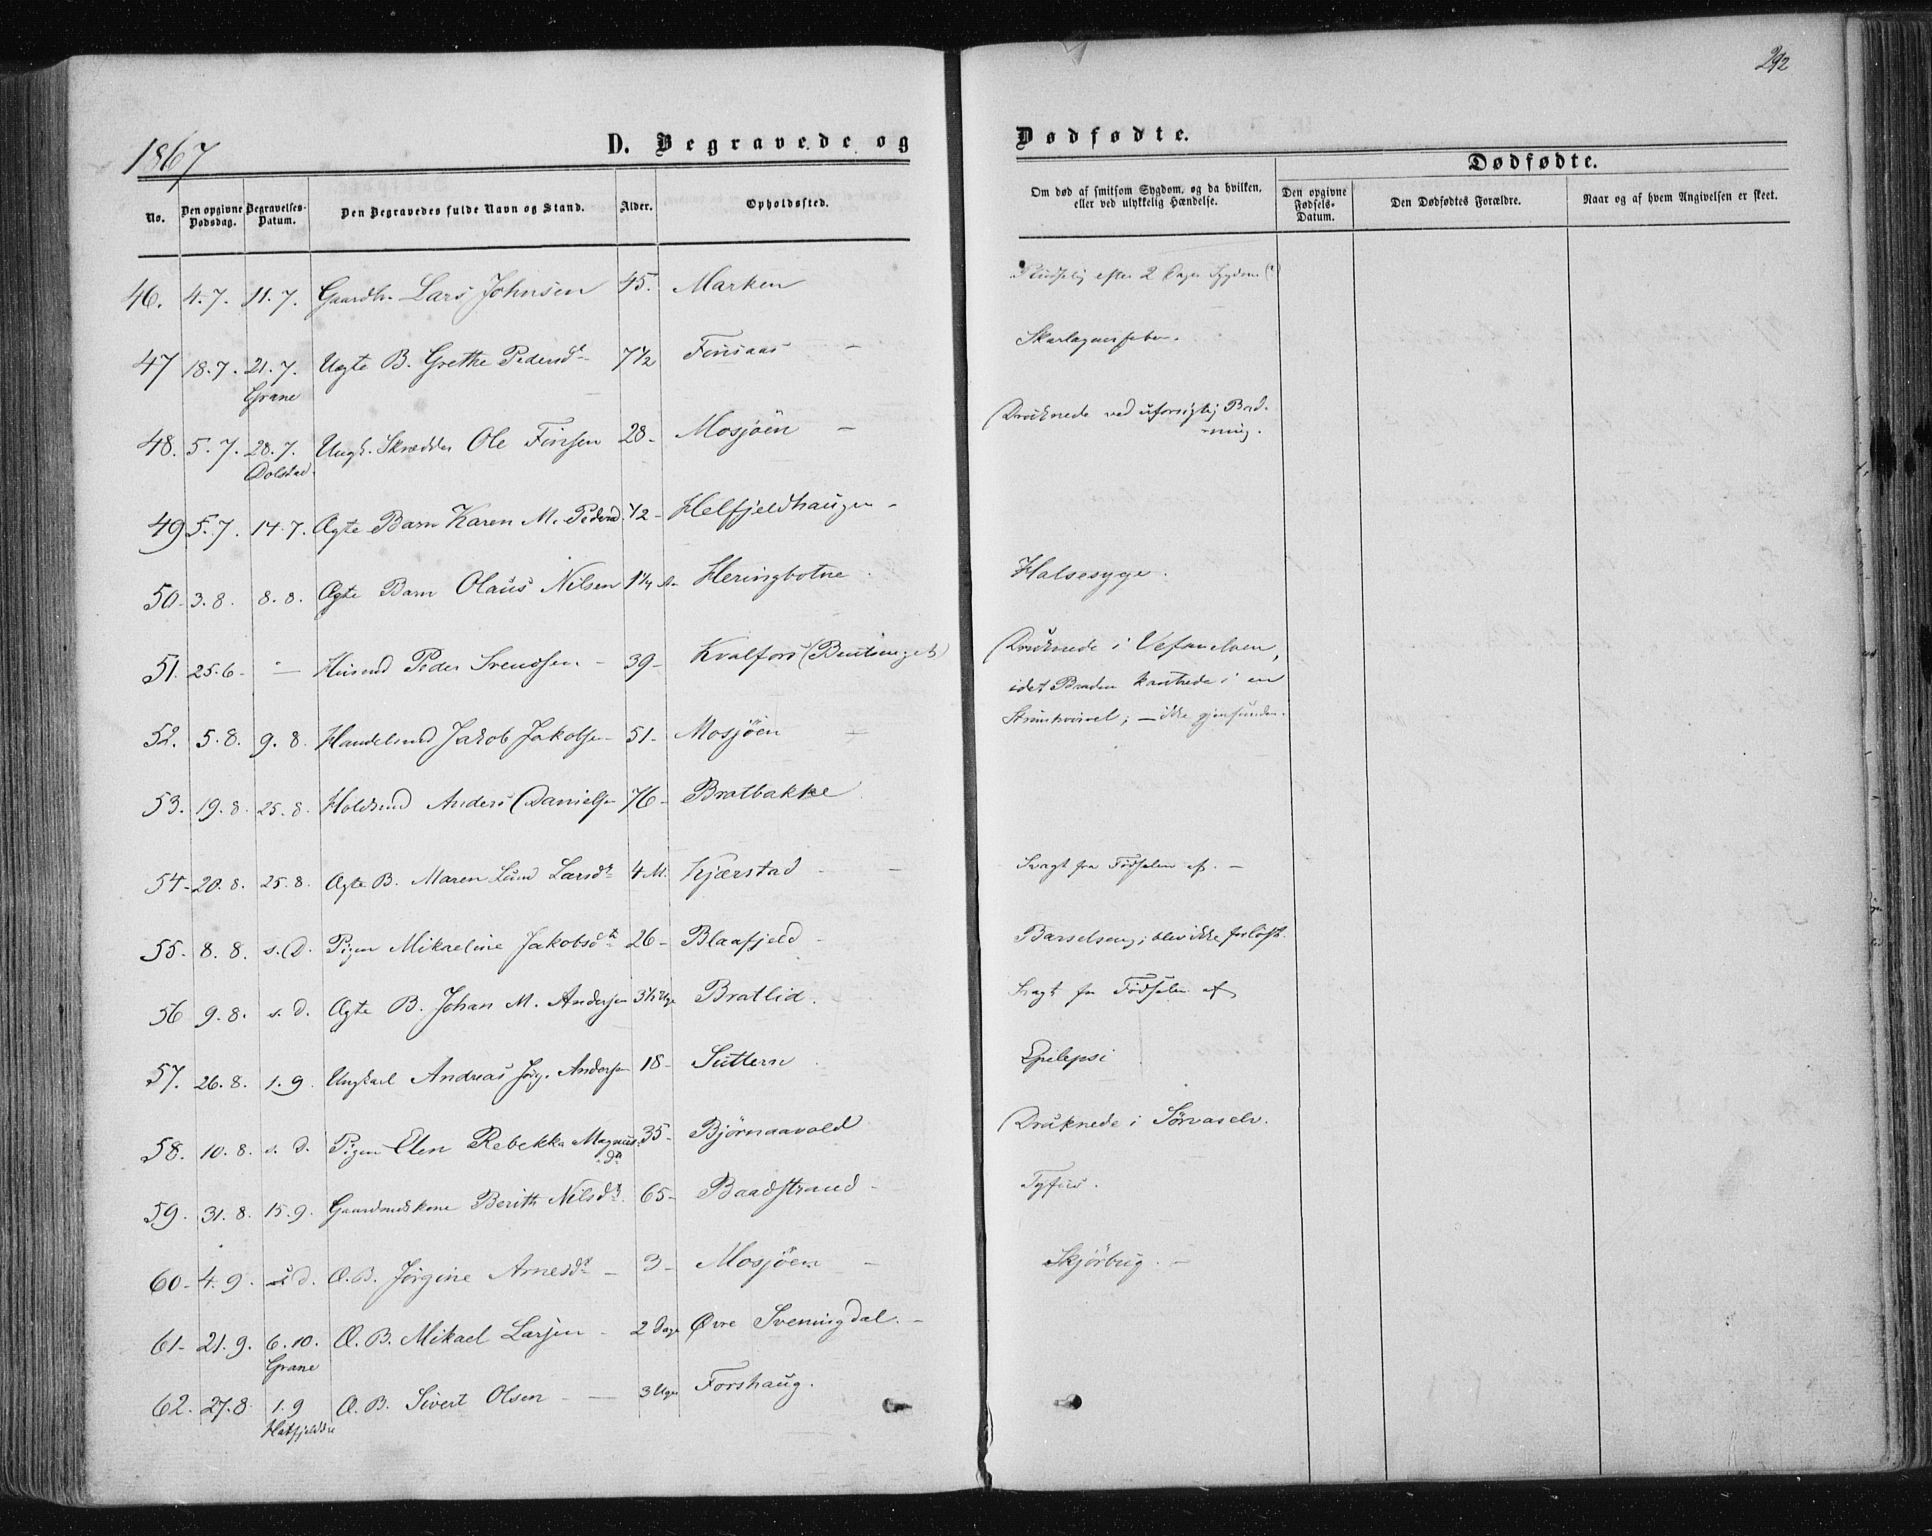 292
1867
D. Begravede og Dødfødte.
Dødfødte.
No. Den opgivne Dødsdag. Begravelses-Datum. Den Begravedes fulde Navn og Stand. Alder. Opholdssted. Om død af smitsom Sygdom, og da hvilken, eller ved ulykkelig Hændelse. Den opgivne Fødsels-Datum. Den Dødfødtes Forældre. Naar og af hvem Angivelsen er skeet.
46. 4.7. 11.7. Gaardbr. Lars Johnsen 45. Marken Pludselig efter 2 Dages Sygdom (?)
47 18.7. 21.7. Ægte B. Grethe Pedersdt 7 1/2 Finsaas - Skarlagensfeber.
Grane
48. 5.7. 28.7. Ungk. Skrædder Ole Finsen 28- Mosjöen - Druknede ved uforsigtig Bad-
ning.
Dolstad.
49 5.7. 14.7. Ægte Barn Karen M. Pedersd. 1/2 - Helfjeldhaugen -
50- 3.8. 8.8. Ægte Barn Olaus Nilsen 1 1/4 A. Heringbotne. Halsesyge.
51. 25.6- - Husmd Peder Svendsen - 39- Kvalfors Druknede i Vefsnelven,
idet Baaden kantrede i en
Strømhvirvel; - ikke gjenfunden.
52. 5.8. 9.8. Handelsmd Jakob Jakobsen 51- Mosjöen -
53. 19.8. 25.8. Holdsmd Anders Danielsen 76- Bratbakke
54- 20.8. 25.8. Ægte B. Maren Lund Larsdt 4 M. Kjærstad - Svagt fra Fødselen af. -
55- 8.8. s.D. Pigen Mikaeline Jakobsdt 26- Blaafjeld - Barselseng; blev ikke forløst.
56 9.8. s.d. Ægte B. Johan M. Andersen 3 1/2 Uge Bratlid. Svagt fra Fødselen af
57. 26.8. 1.9. Ungkarl Andreas Jørg. Andersen 18- Suttern Epilepsi
58. 10.8. s.d. Pigen Elen Rebekka Magnus- 35- Bjørnaavold Druknede i
dt
59. 31.8. 15.9. Gaardmdskone Berith Nilsdt. 65- Baadstrand - Tyfus.
60- 4.9. s.d. Æ.B. Jørgine Arnesdt - 3- Mosjöen - Skjörbug. -
61- 21.9. 6.10. Æ.B. Mikael Larsen - 2 Dage Øvre Svenningdal. -
Grane
62. 27.8 1.9 Æ.B. Sivert Olsen - 3 Uger Forshaug.